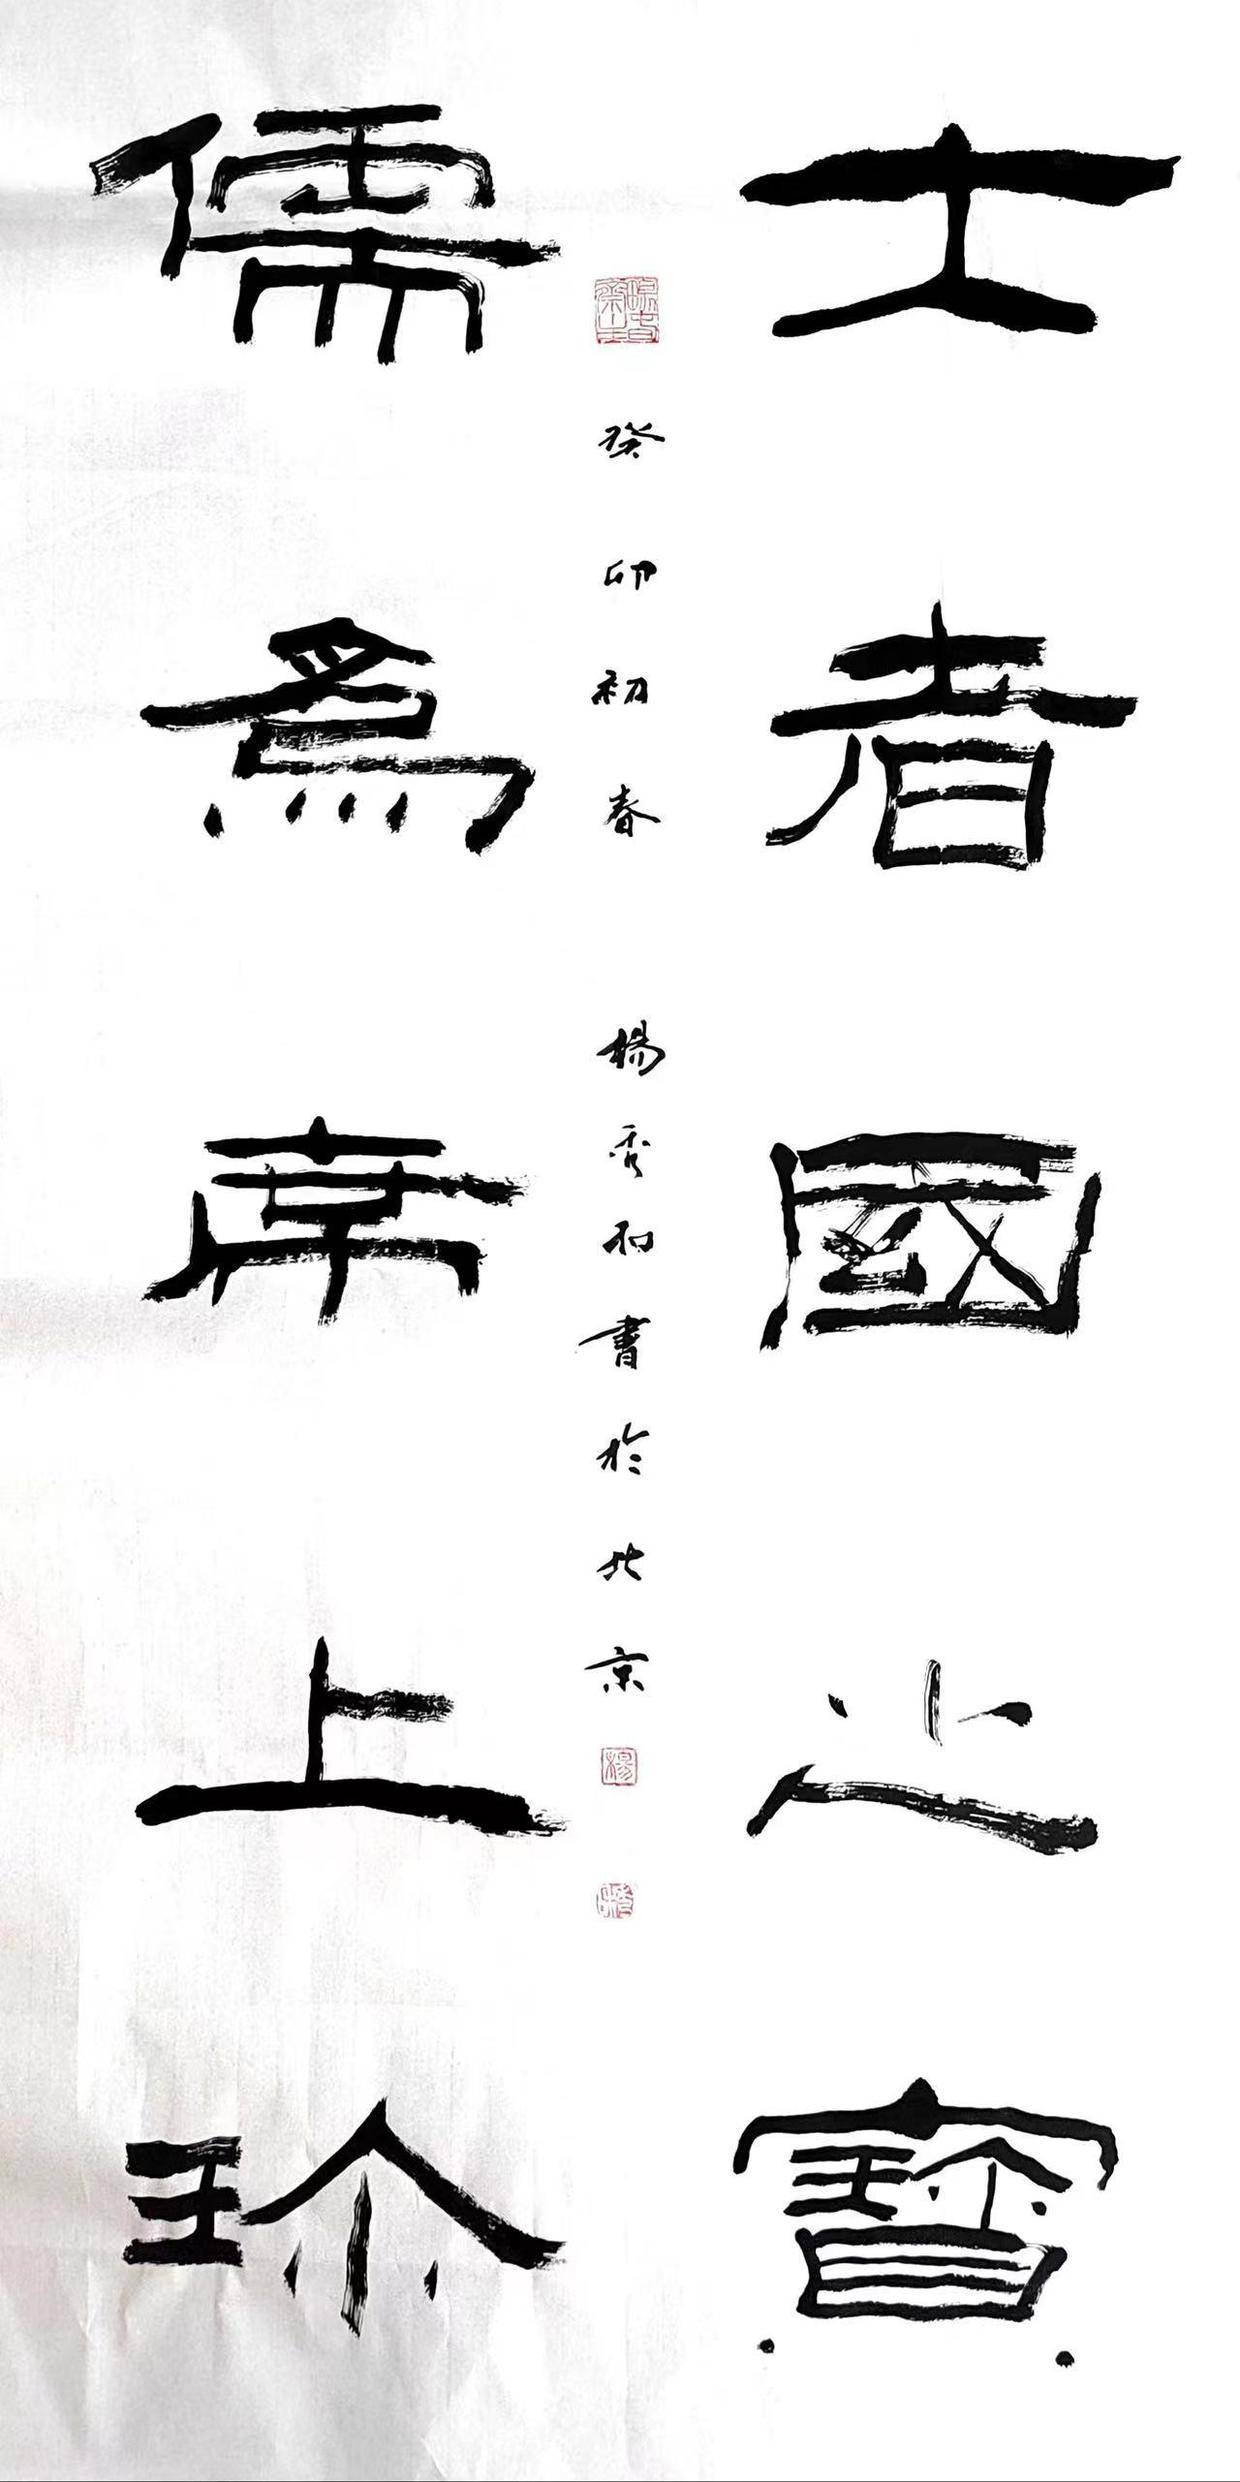 士者國之寶
癸卯初春 楊秀和書於北京
楊
儒為席上珍